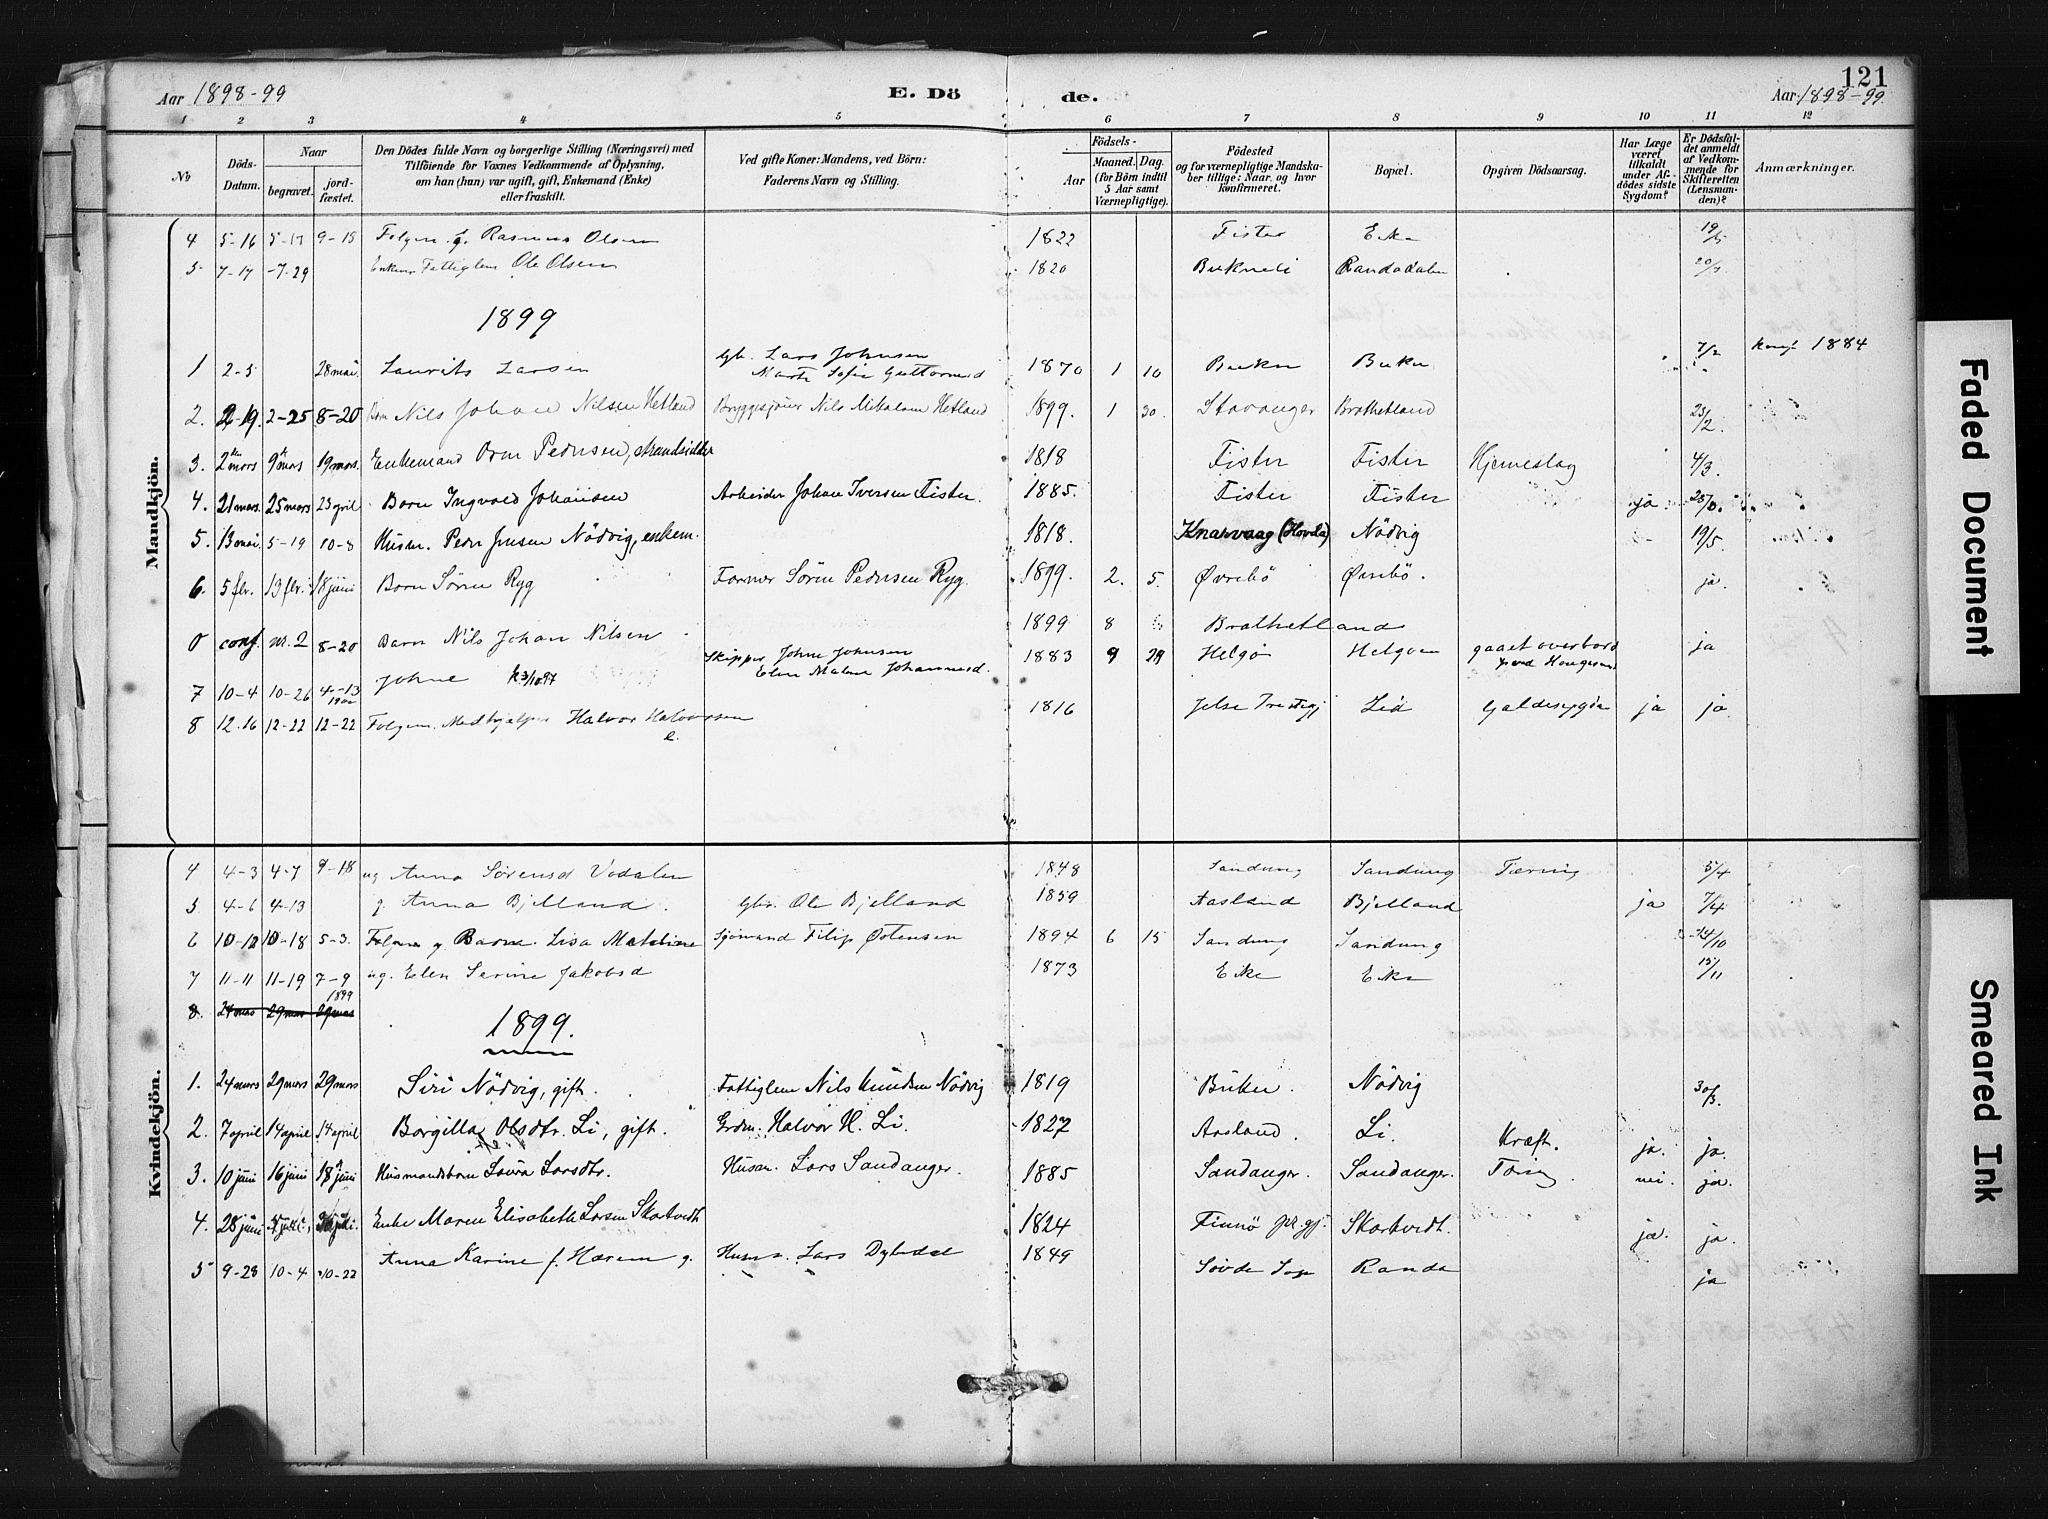 Aar 1898-99
E. Dö
de.
121
Aar 1898-99.
1 2 3 4 5 6 7 8 9 10 11 12
№
Döds-Datum.
Naar
begravet.
jord-fæstet.
Den Dödes fulde Navn og borgerlige Stilling (Næringsvei) med
Tilföiende for Voxnes Vedkommende af Oplysning,
om han (hun) var ugift, gift, Enkemand (Enke)
eller fraskilt.
Ved gifte Koner: Mandens, ved Börn:
Faderens Navn og Stilling.
Födsels-
Aar
Maaned. Dag.
(for Börn indtil
5 Aar samt
Værnepligtige).
Födested
og for værnepligtige Mandska-
ber tillige: Naar og hvor
konfirmeret.
Bopæl.
Opgiven Dödsaarsag.
Har Læge
været
tilkaldt
under Af-
dödes sidste
Sygdom?
Er Dödsfal-
det anmeldt
af Vedkom-
mende for
Skifteretten
(Lensman-
den)?
Anmærkninger.
Mandkjön.
4 5-16 5-17 9-18 Rasmus Olsen 1822 Fister Eike 19/5
5 7-17 -7-29 Fattiglem Ole Olsen 1820 Randadalen
1899
1 2-5 28 mai Laurits Larsen Gb. Lars Johnsen 1870 1 10 Bukn Bukn 7/2 konf 1884
Marte Sofie Guttormsd
2. 2-19. 2-25 8-20 Barn Nils Johan Nilsen Hetland Bryggesjauer Nils Mikalsen Hetland 1899. 1 30. Stavanger Brathetland 23/2.
3. 2 mars 9 mars 19 mars. Enkemand Orm Pedersen, strandsidder 1818 Fister Fister Hjerneslag 4/3.
4. 21 mars. 25 mars 23 april Barn Ingvald Johansen Arbeider Johan Iversen Fister. 1885. Fister Fister ja.
5. 13 mai. 5-19 10-8 Husm. Peder Jensen Nödvig, enkem. 1818. Knarvaag (Hovda) Nödvig 19/5.
6. 5 13 18 juni Barn Sören Ryg Farmer Sören Pedersen Ryg. 1899. 2. 5. Øvrebö Øvrebö. ja.
0 conf. nr. 2 8-20 Barn Nils Johan Nilsen 1899 8 Brathetland
7 10-4 10-26 4-13 1900 Johne k 3/10 97 Skipper Johne Johnsen 1883 9 29 Helgö Helgöen gaaet overbord ja
Elen Malene Johannesd.
8 12.16 12-22 12-22 Folgem. Medhjælper Halvor Halvorssen 1816 Jelse Lid Galdesygdom ja ja
e.
Kvindekjön.
4 4-3 4-7 9-18 ug Anna Sörensd Vadalen 1848 Sandung Sandung Tæring 5/4
5 4-6 4-13 g. Anna Bjelland. Gbr. Ole Bjelland 1859 Aasland Bjelland ja 7/4
6 10-12 10-18 5-3. Barn Lisa Sjömand Filip Østensen 1894 6 15 Sandung Sandung 14/10
7 11-11 11-19 7-9 1899 ug. Elen Serine Jakobsd 1873 Eike Eike 15/11
8. 24 mars 29 mars 29 mars
1899.
1. 24 mars 29 mars 29 mars Siri Nödvig, gift. Fattiglem Nils Knudsen Nödvig 1819 Buken. Nödvig 30/3.
2. 7 april 14 april 14 april Borgilla Olsdtr. Li, gift. Grdm. Halvor H. Li. 1827 Aasland. Li. Kræft. ja. ja.
3. 10 juni 16 juni 18 juni Husmandsbarn Laura Larsdtr. Husm. Lars Sandanger. 1885 Sandanger. Sandanger. Tæring. nei. ja.
4. 28 juni Enke Maren Elisabeth Larsen Skartvedt 1824 Finnö pr.gj. Skartvedt. ja. ja.
5 9-28 10-4 10-22 Anna Karine f. Hærem g. Husm. Lars Dybedal 1849 Sövde Randa ja
Faded Document
Smeared Ink